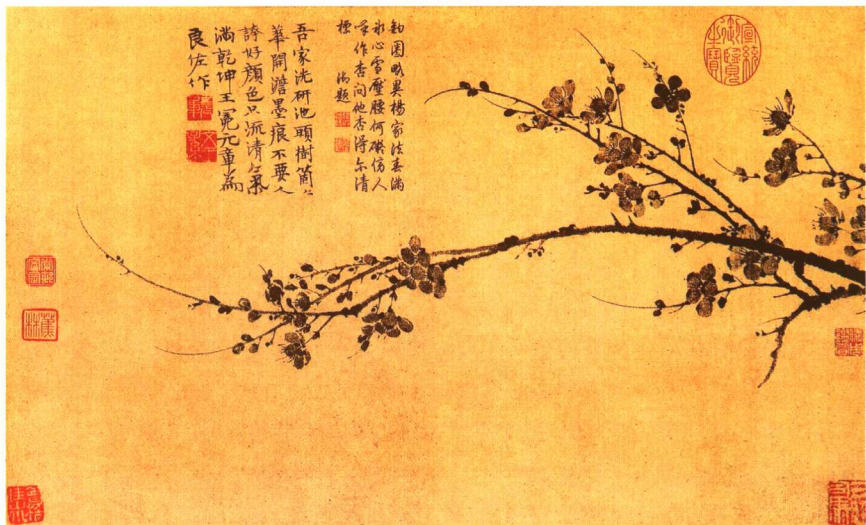 宣統
御覽
之寶
鈎圈畧異楊家法春滿
氷心雪壓腰何礙傍人
呼作杏問他杏得尔清
標 御題
吾家洗研池頭樹箇〻
華開澹墨痕不要人
誇好顏色只流清氣
滿乾坤王冕元章為
良佐作
蕉林